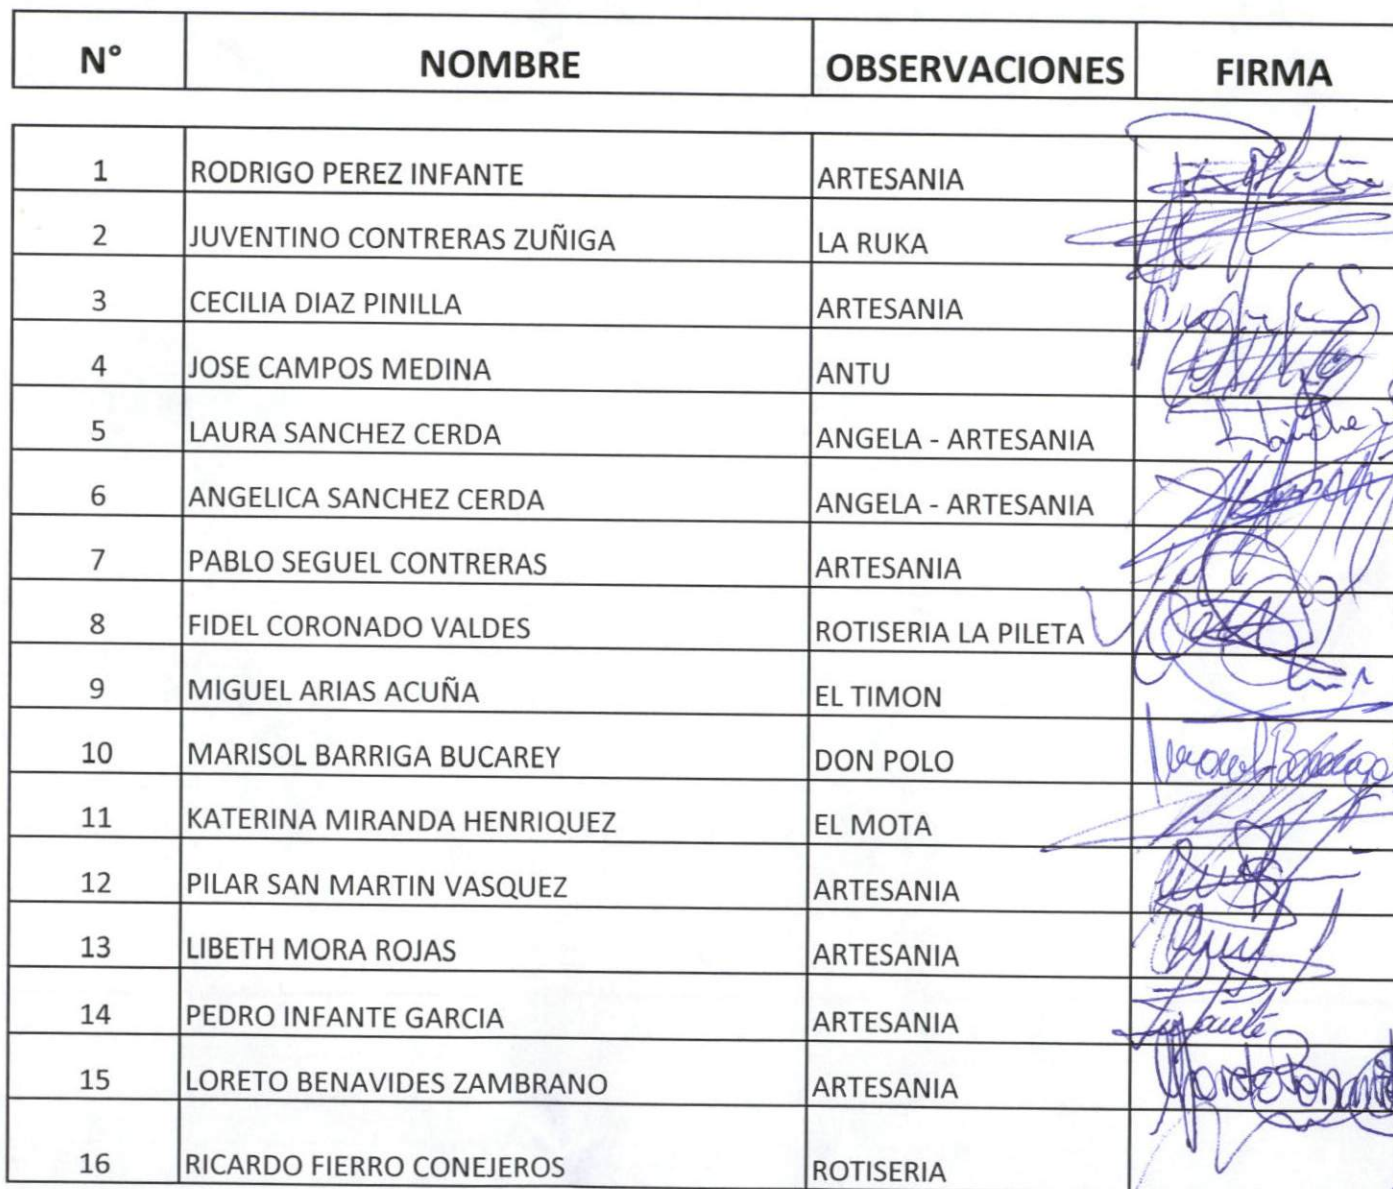 N° NOMBRE OBSERVACIONES FIRMA
1 RODRIGO PEREZ INFANTE ARTESANIA
2 JUVENTINO CONTRERAS ZUÑIGA LA RUKA
3 CECILIA DIAZ PINILLA ARTESANIA
4 JOSE CAMPOS MEDINA ANTU
5 LAURA SANCHEZ CERDA ANGELA - ARTESANIA
6 ANGELICA SANCHEZ CERDA ANGELA - ARTESANIA
7 PABLO SEGUEL CONTRERAS ARTESANIA
8 FIDEL CORONADO VALDES ROTISERIA LA PILETA
9 MIGUEL ARIAS ACUÑA EL TIMON
10 MARISOL BARRIGA BUCAREY DON POLO
11 KATERINA MIRANDA HENRIQUEZ EL MOTA
12 PILAR SAN MARTIN VASQUEZ ARTESANIA
13 LIBETH MORA ROJAS ARTESANIA
14 PEDRO INFANTE GARCIA ARTESANIA
15 LORETO BENAVIDES ZAMBRANO ARTESANIA
16 RICARDO FIERRO CONEJEROS ROTISERIA